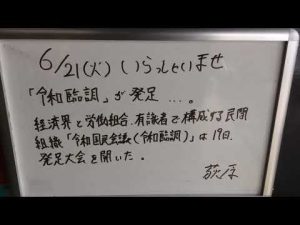 6/21(火) いらっしゃいませ
「令和臨調」が発足 ...。
経済界と労働組合、有識者で構成する民間
組織「令和国民会議(令和臨調)」は19日、
発足大会を開いた。
荻原